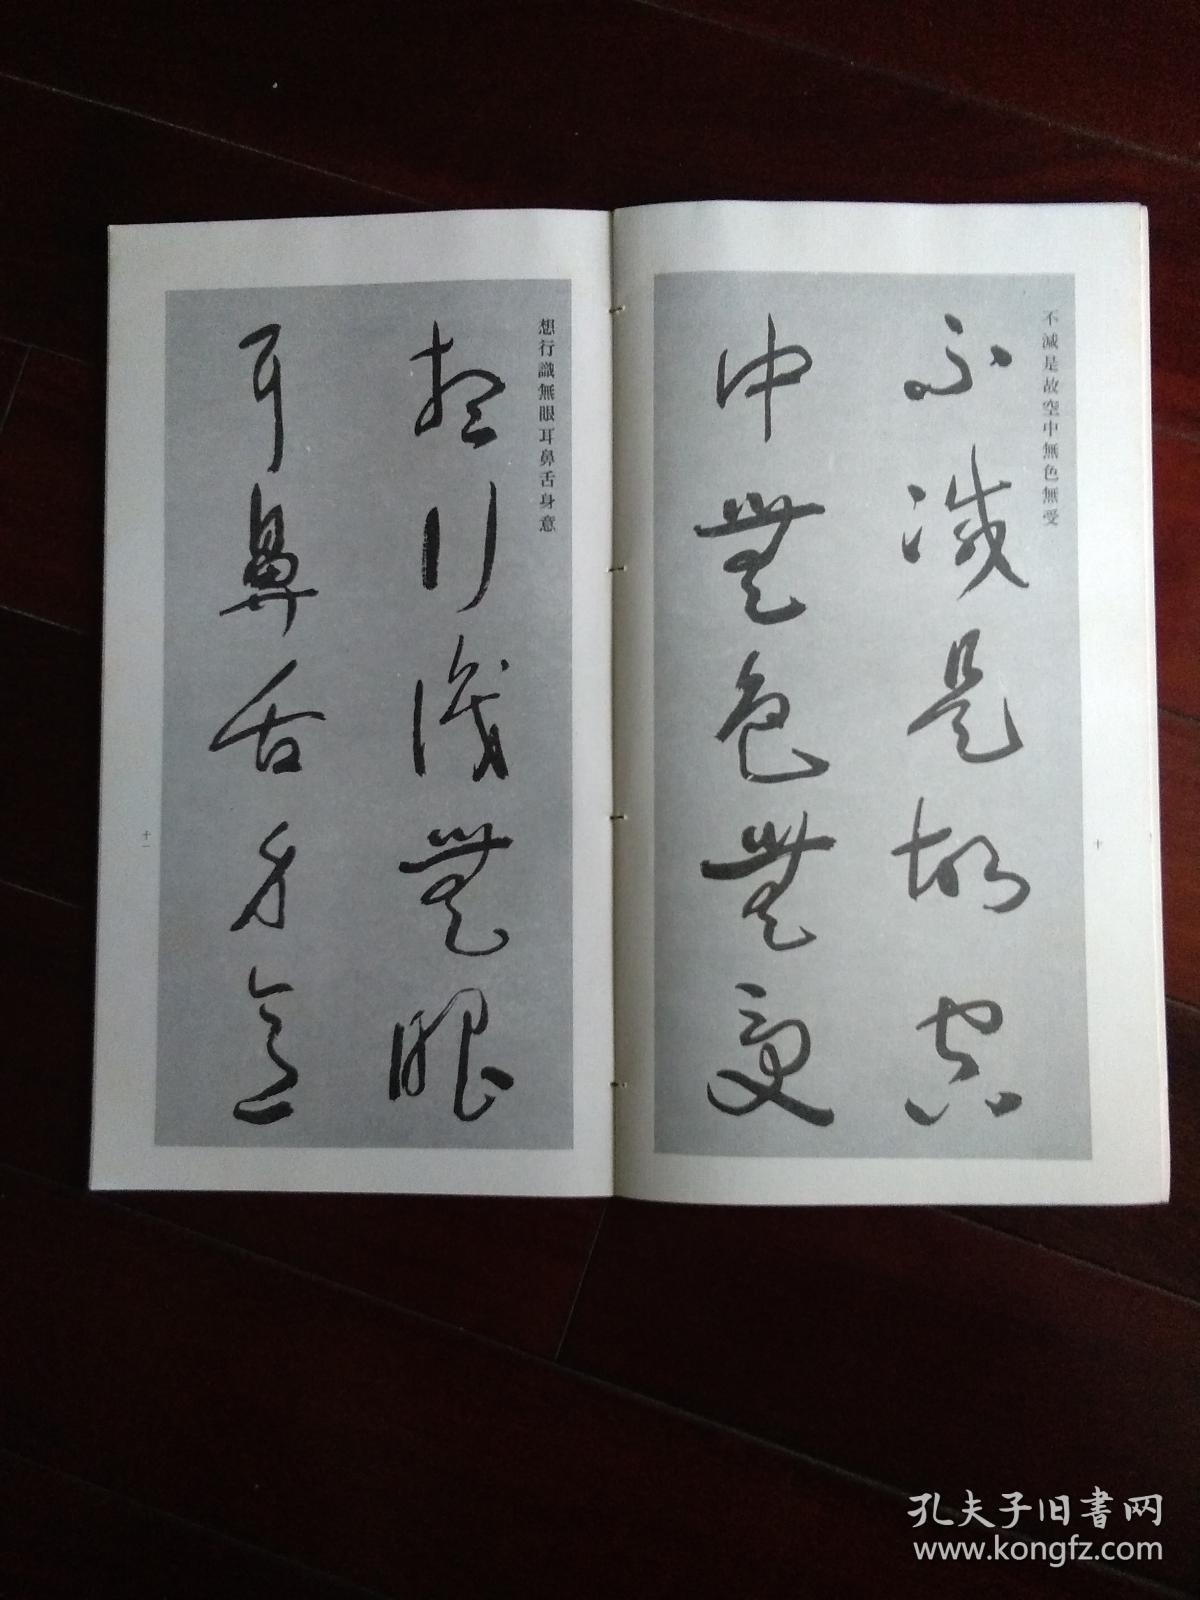 不減是故空中無色無受
不減是故空
中無色無受
十
想行識無眼耳鼻舌身意
想行識無眼
耳鼻舌身意
十一
孔夫子旧書网
www.kongfz.com